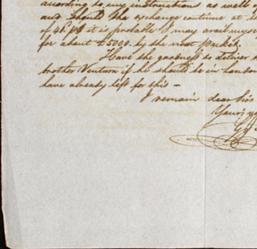 according to my instructions as well o
and should the exchange continue at
of it is probable I may avail myse
for about £5000 by the next Packet.
Have the goodness to deliver
brother Ventura if he should be in London
have already left for this —
I remain dear Sirs
Yours